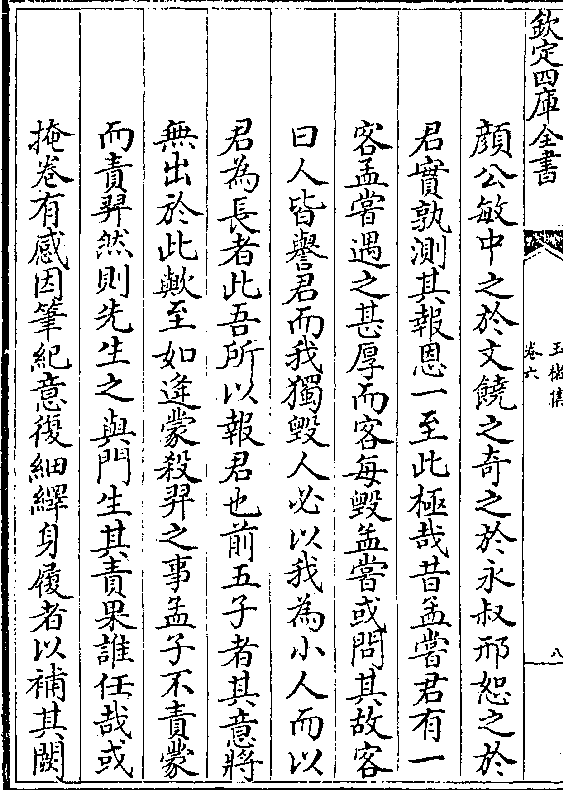 欽定四庫全書
玉楮集
卷六
八
顔公敏中之於文饒之奇之於永叔邢恕之於
君實孰測其報恩一至此極哉昔孟嘗君有一
客孟嘗遇之甚厚而客每毁孟嘗或問其故客
曰人皆譽君而我獨毁人必以我為小人而以
君為長者此吾所以報君也前五子者其意將
無出於此歟至如逄蒙殺羿之事孟子不責蒙
而責羿然則先生之與門生其責果誰任哉或
掩卷有感因筆紀意復細繹身履者以補其闕